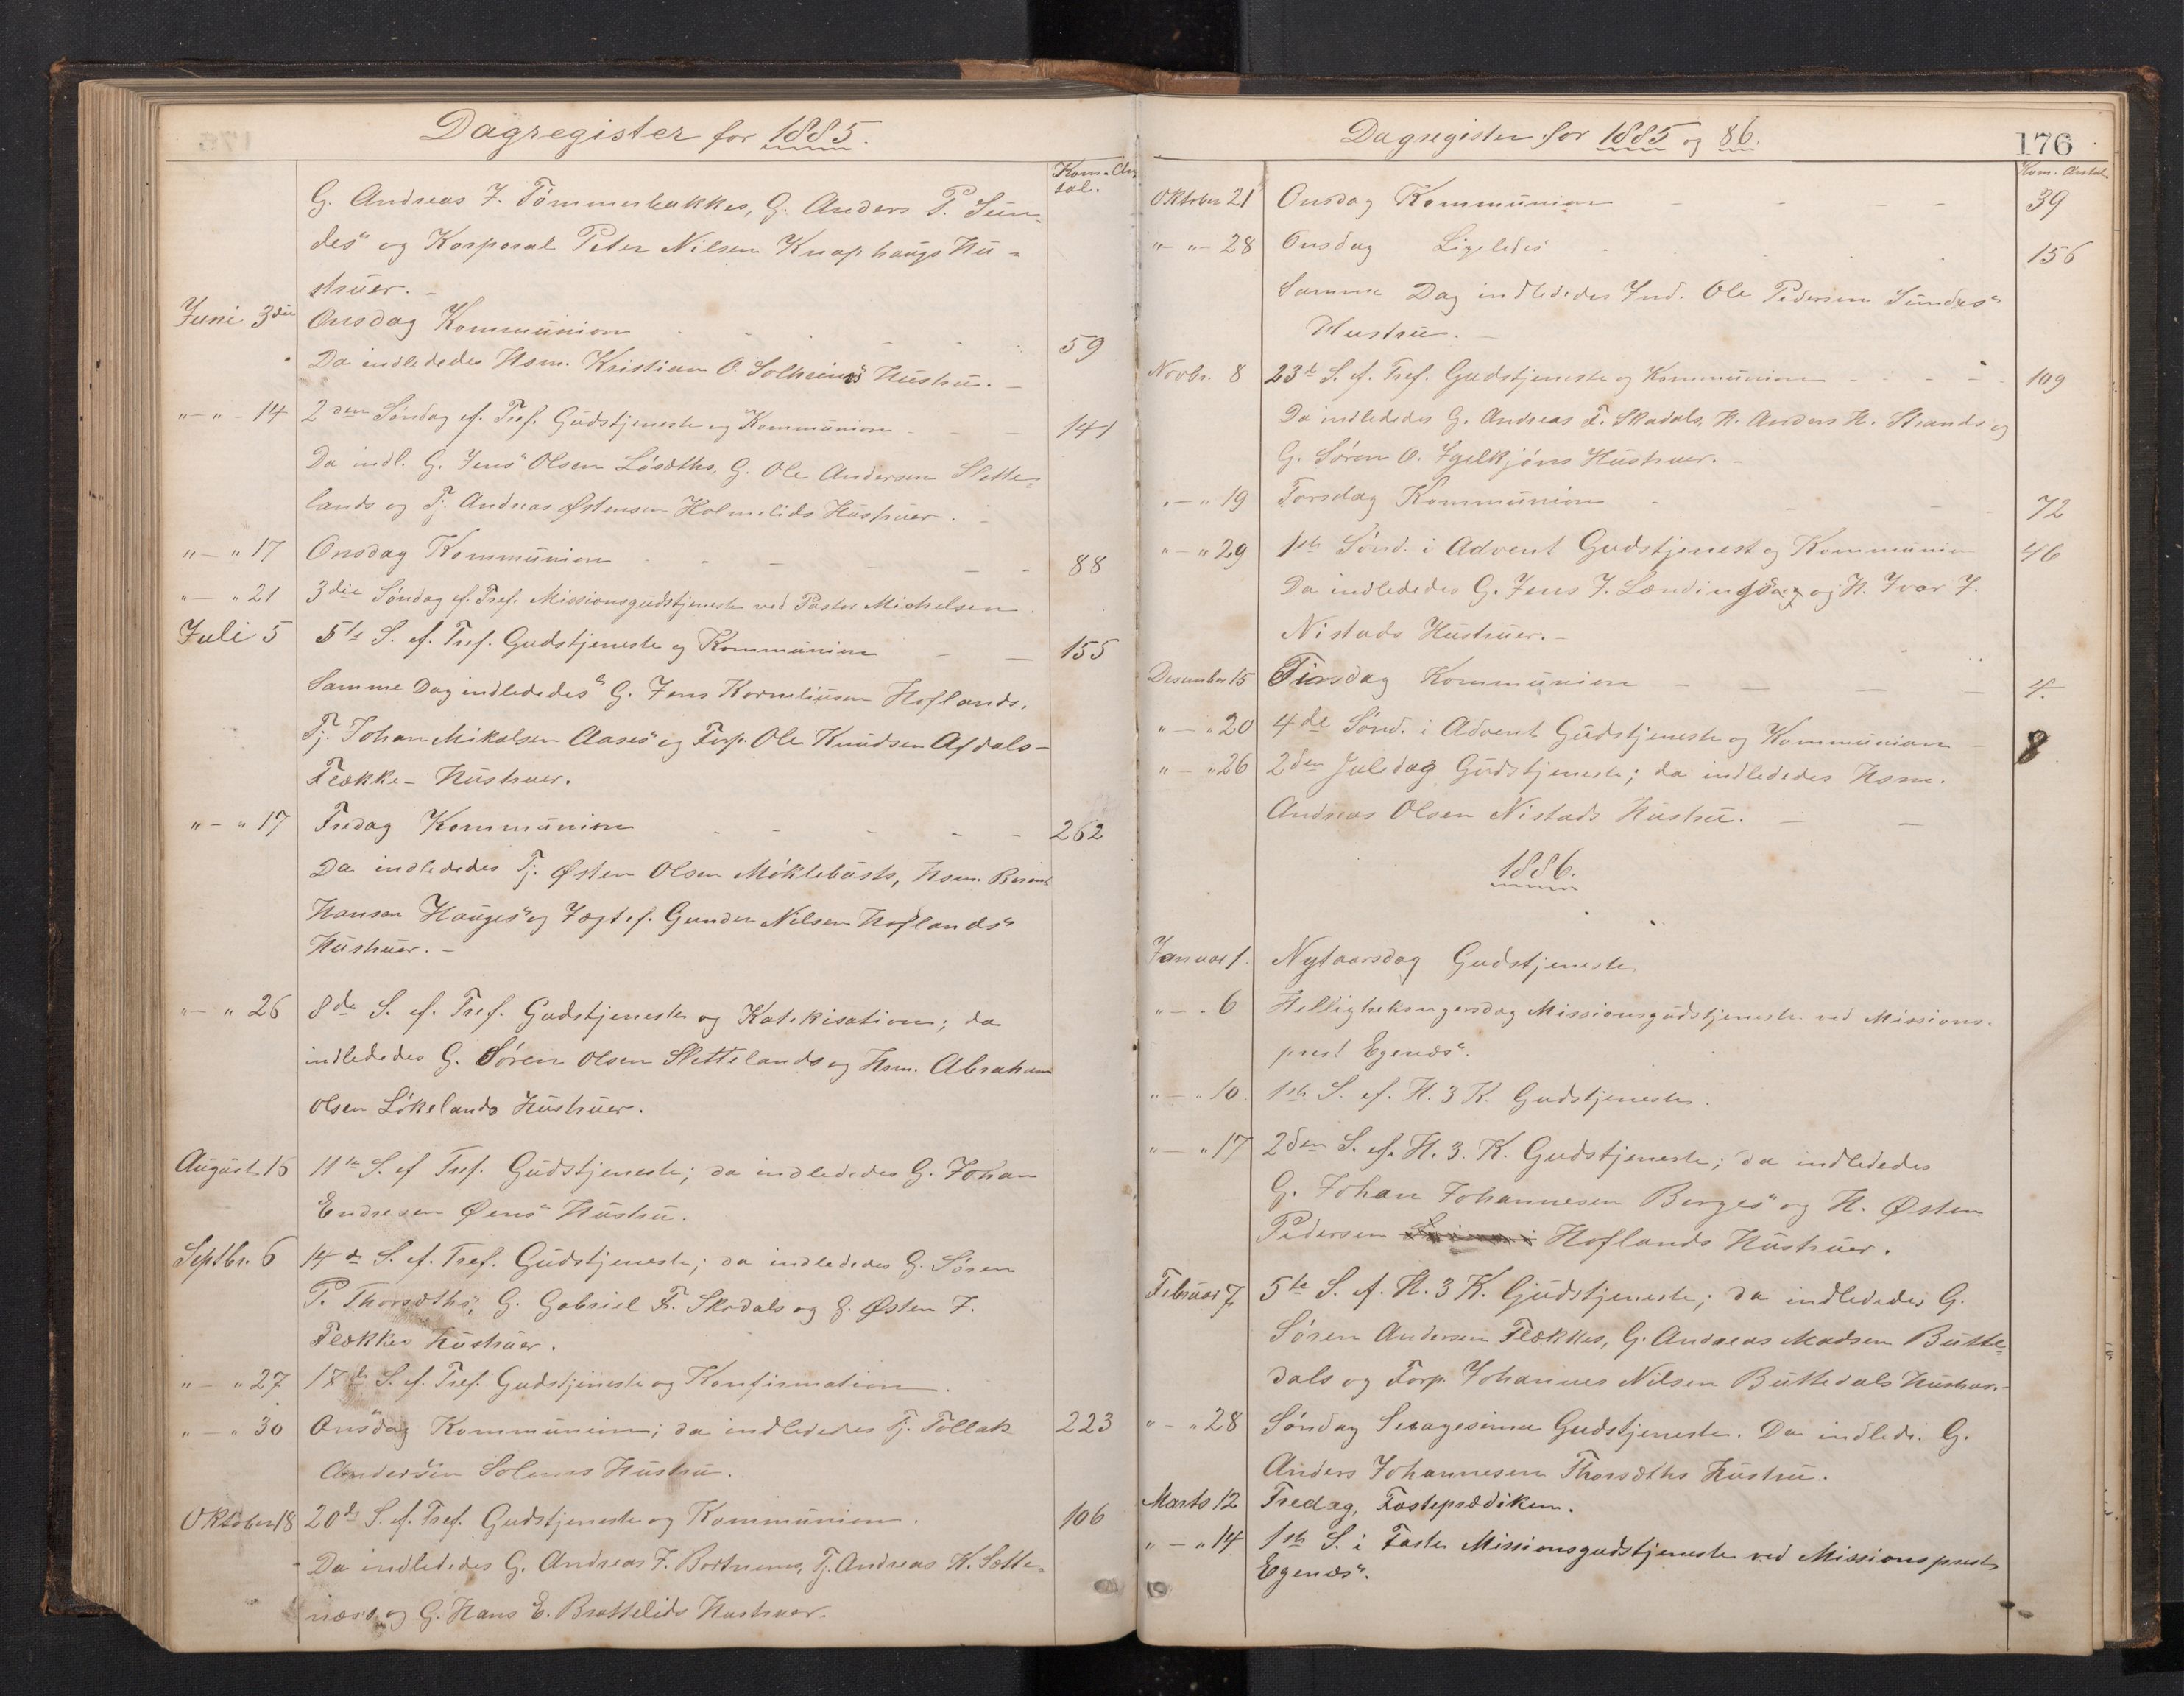 Dagregister for 1885.
Kom. An
tal.
G. Andreas J. Tømmerbakkes, G. Anders P. Sun-
des og Korporal Peter Nilsen Knaphaugs Hu-
struer. -
Juni 3die Onsdag Kommunion - - - - 59
Da indlededes Hsm. Kristian O. Solheims Hustru. -
" - " - 14 2den Søndag ef. Tref. Gudstjeneste og Kommunion - - 141
Da indl. G. Jens Olsen Løsæths, G. Ole Andersen Slette-
lands og Tj. Andreas Østensen Holmelids Hustruer. -
" - " 17 Onsdag Kommunion - - - - 88
" - " 21 3die Søndag ef. Tref. Missionsgudstjeneste ved Pastor Michelsen.
Juli 5 5te S. ef. Tref. Gudstjeneste og Kommunion - - 155
Samme Dag indlededes G. Jens Korneliusen Hoflands,
Tj. Johan Mikalsen Aases og Forp. Ole Knudsen Afdals-
Flække- Hustruer.
" - " 17 Fredag Kommunion - - - - 262
Da indlededes Tj. Østen Olsen Møklebusts, Hsm. Berent
Hansen Hauges og Jægt ef. Gunder Nilsen Hoflands
Hustruer. -
" - " 26 8de S. ef. Tref. Gudstjeneste og Katekisation; da
indlededes G. Søren Olsen Slettelands og Hsm. Abraham
Olsen Løkelands Hustruer.
August 15 11te S. ef Tref. Gudstjeneste; da indlededes G. Johan
Endresen Øens Hustru.
Septbr. 6 14de S. ef. Tref. Gudstjeneste; da indlededes G. Søren
P. Thorsæths, G. Gabriel F. Skodals og G. Østen J.
Flækkes Hustruer.
" - " 27 17de S. ef. Tref. Gudstjeneste og Konfirmation.
" - " 30 Onsdag Kommunion; da indlededes Tj. Tollak 223
Andersen Solems Hustru.
Oktober 18 20de S. ef. Tref. Gudstjeneste og Kommunion. 106
Da indlededes G. Andreas J. Bortnems, Tj. Andreas K. Sætte-
næs's og G. Hans E. Brattelids Hustruer.
Dagregister for 1885 og 86.
176
Kom. Antal.
Oktober 21 Onsdag Kommunion - - - - 39
" - " - 28 Onsdag Ligeledes 156
Samme Dag indlededes Ind. Ole Pedersen Sundes
Hustru. -
Novbr. 8 23de S. ef. Tref. Gudstjeneste og Kommunion - - - - 109
Da indlededes G. Andreas F. Skodals, H. Anders H. Strands og
G. Søren O. Igelkjøns Hustruer. -
" - " 19 Torsdag Kommunion - - - 72
" - " 29 1ste Sønd. i Advent Gudstjenest og Kommunion 46
Da indlededes G. Jens J. Lændings og H. Ivar J.
Nistads Hustruer. -
Desember 15 Tirsdag Kommunion - - - - 4.
" - " 20 4de Sønd. i Advent Gudstjeneste og Kommunion - 8
" - " 26 2den Juledag Gudstjeneste; da indlededes Hsm.
Andreas Olsen Nistads Hustru. - -
1886.
Januar 1. Nytaarsdag Gudstjeneste
" - " 6 Hellightrekongersdag Missionsgudstjeneste ved Missions-
prest Egenæs.
" - " 10. 1ste S. ef. H. 3 K. Gudstjeneste.
" - " 17 2den S. ef. H. 3. K. Gudstjeneste; da indlededes
G. Johan Johannesen Berges og H. Østen
Pedersen Hoflands Hustruer.
Februar 7 5te S. ef. H. 3 K. Gudstjeneste; da indlededes G.
Søren Andersen Flækkes, G. Andreas Madsen Butte-
dals og Forp. Johannes Nilsen Buttedals Hustruer.
" - " 28 Søndag Sexagesima Gudstjeneste. Da indlede. G.
Anders Johannesen Thorsæths Hustru.
Marts 12 Fredag, Fasteprædiken.
" - " 14 1ste S. i Faste Missionsgudstjeneste ved Missionsprest
Egenæs.